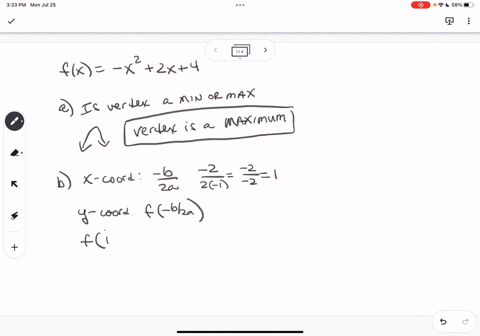 3:33 PM Mon Jul 25
58%
f(x) = -x² + 2x + 4
a) Is vertex a MIN OR MAX
vertex is a MAXIMUM
b) x-coord: -b/2a -2/2(-1) = -2/-2 = 1
y-coord f(-b/2a)
f(i